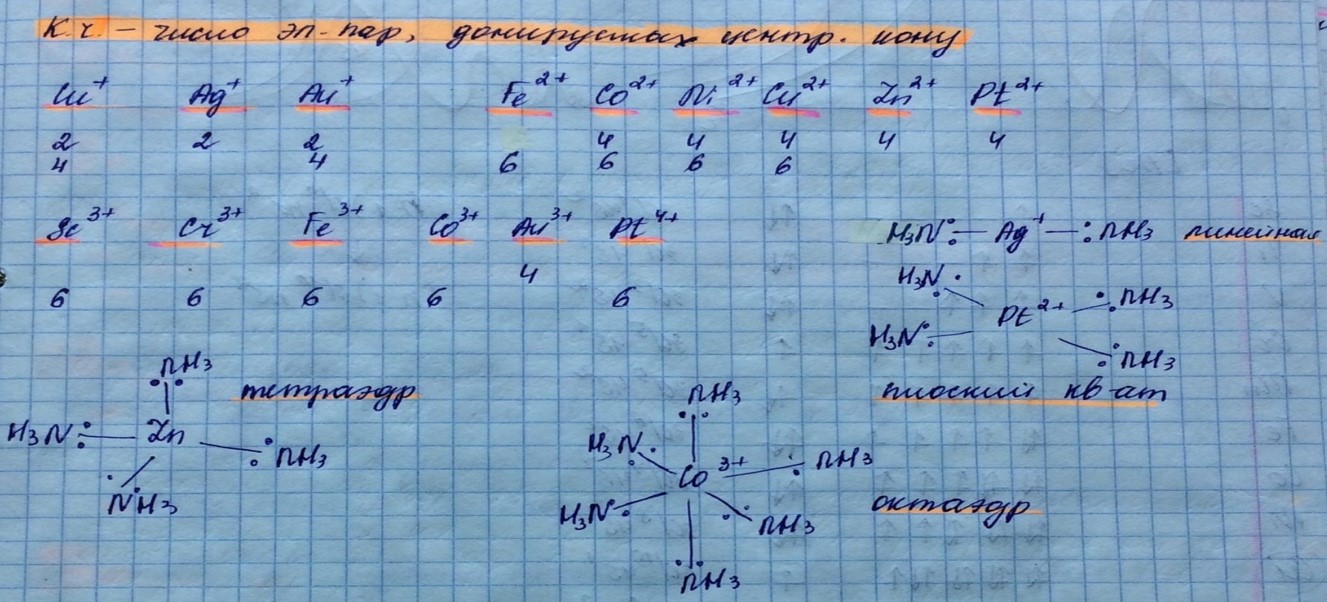 К.ч. – число эл. пар, донируемых центр. иону
Cu⁺ Ag⁺ Au⁺ Fe²⁺ Co²⁺ Ni²⁺ Cu²⁺ Zn²⁺ Pt²⁺
2 2 2 4 4 4 4 4
4 4 6 6 6 6
Sc³⁺ Cr³⁺ Fe³⁺ Co³⁺ Au³⁺ Pt⁴⁺
4
6 6 6 6 6
H₃N: – Ag⁺ – :NH₃ линейная
H₃N: :NH₃
Pt²⁺
H₃N: :NH₃
плоский кв-ат
:NH₃
тетраэдр
H₃N: Zn :NH₃
:NH₃
:NH₃
H₃N: :NH₃
Co³⁺
H₃N: :NH₃
октаэдр
:NH₃